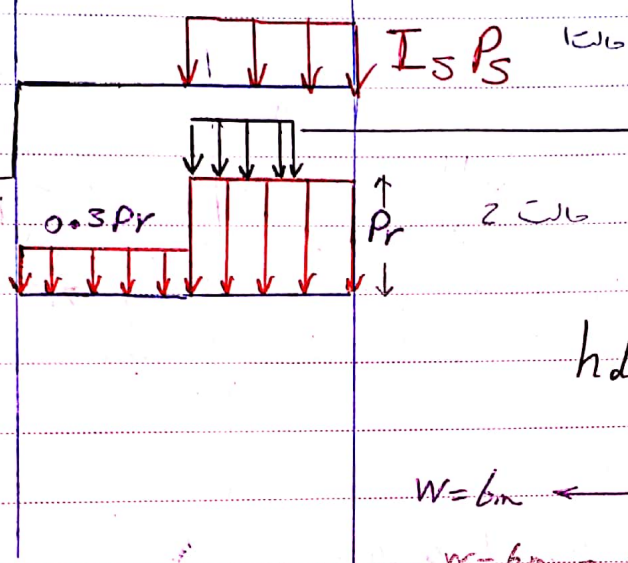 I_s P_s حالت 1
0.3 Pr
Pr
حالت 2
hd
W = 6m
w = 6m